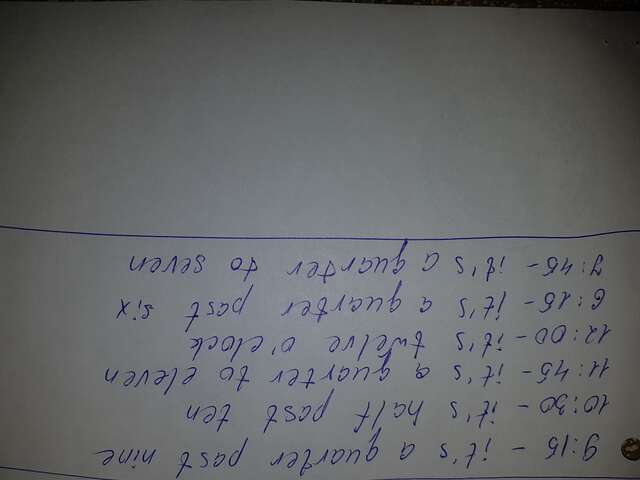 9:15 - it's a quarter past nine
10:30 - it's half past ten
11:45 - it's a quarter to eleven
12:00 - it's twelve o'clock
6:15 - it's a quarter past six
7:45 - it's a quarter to seven